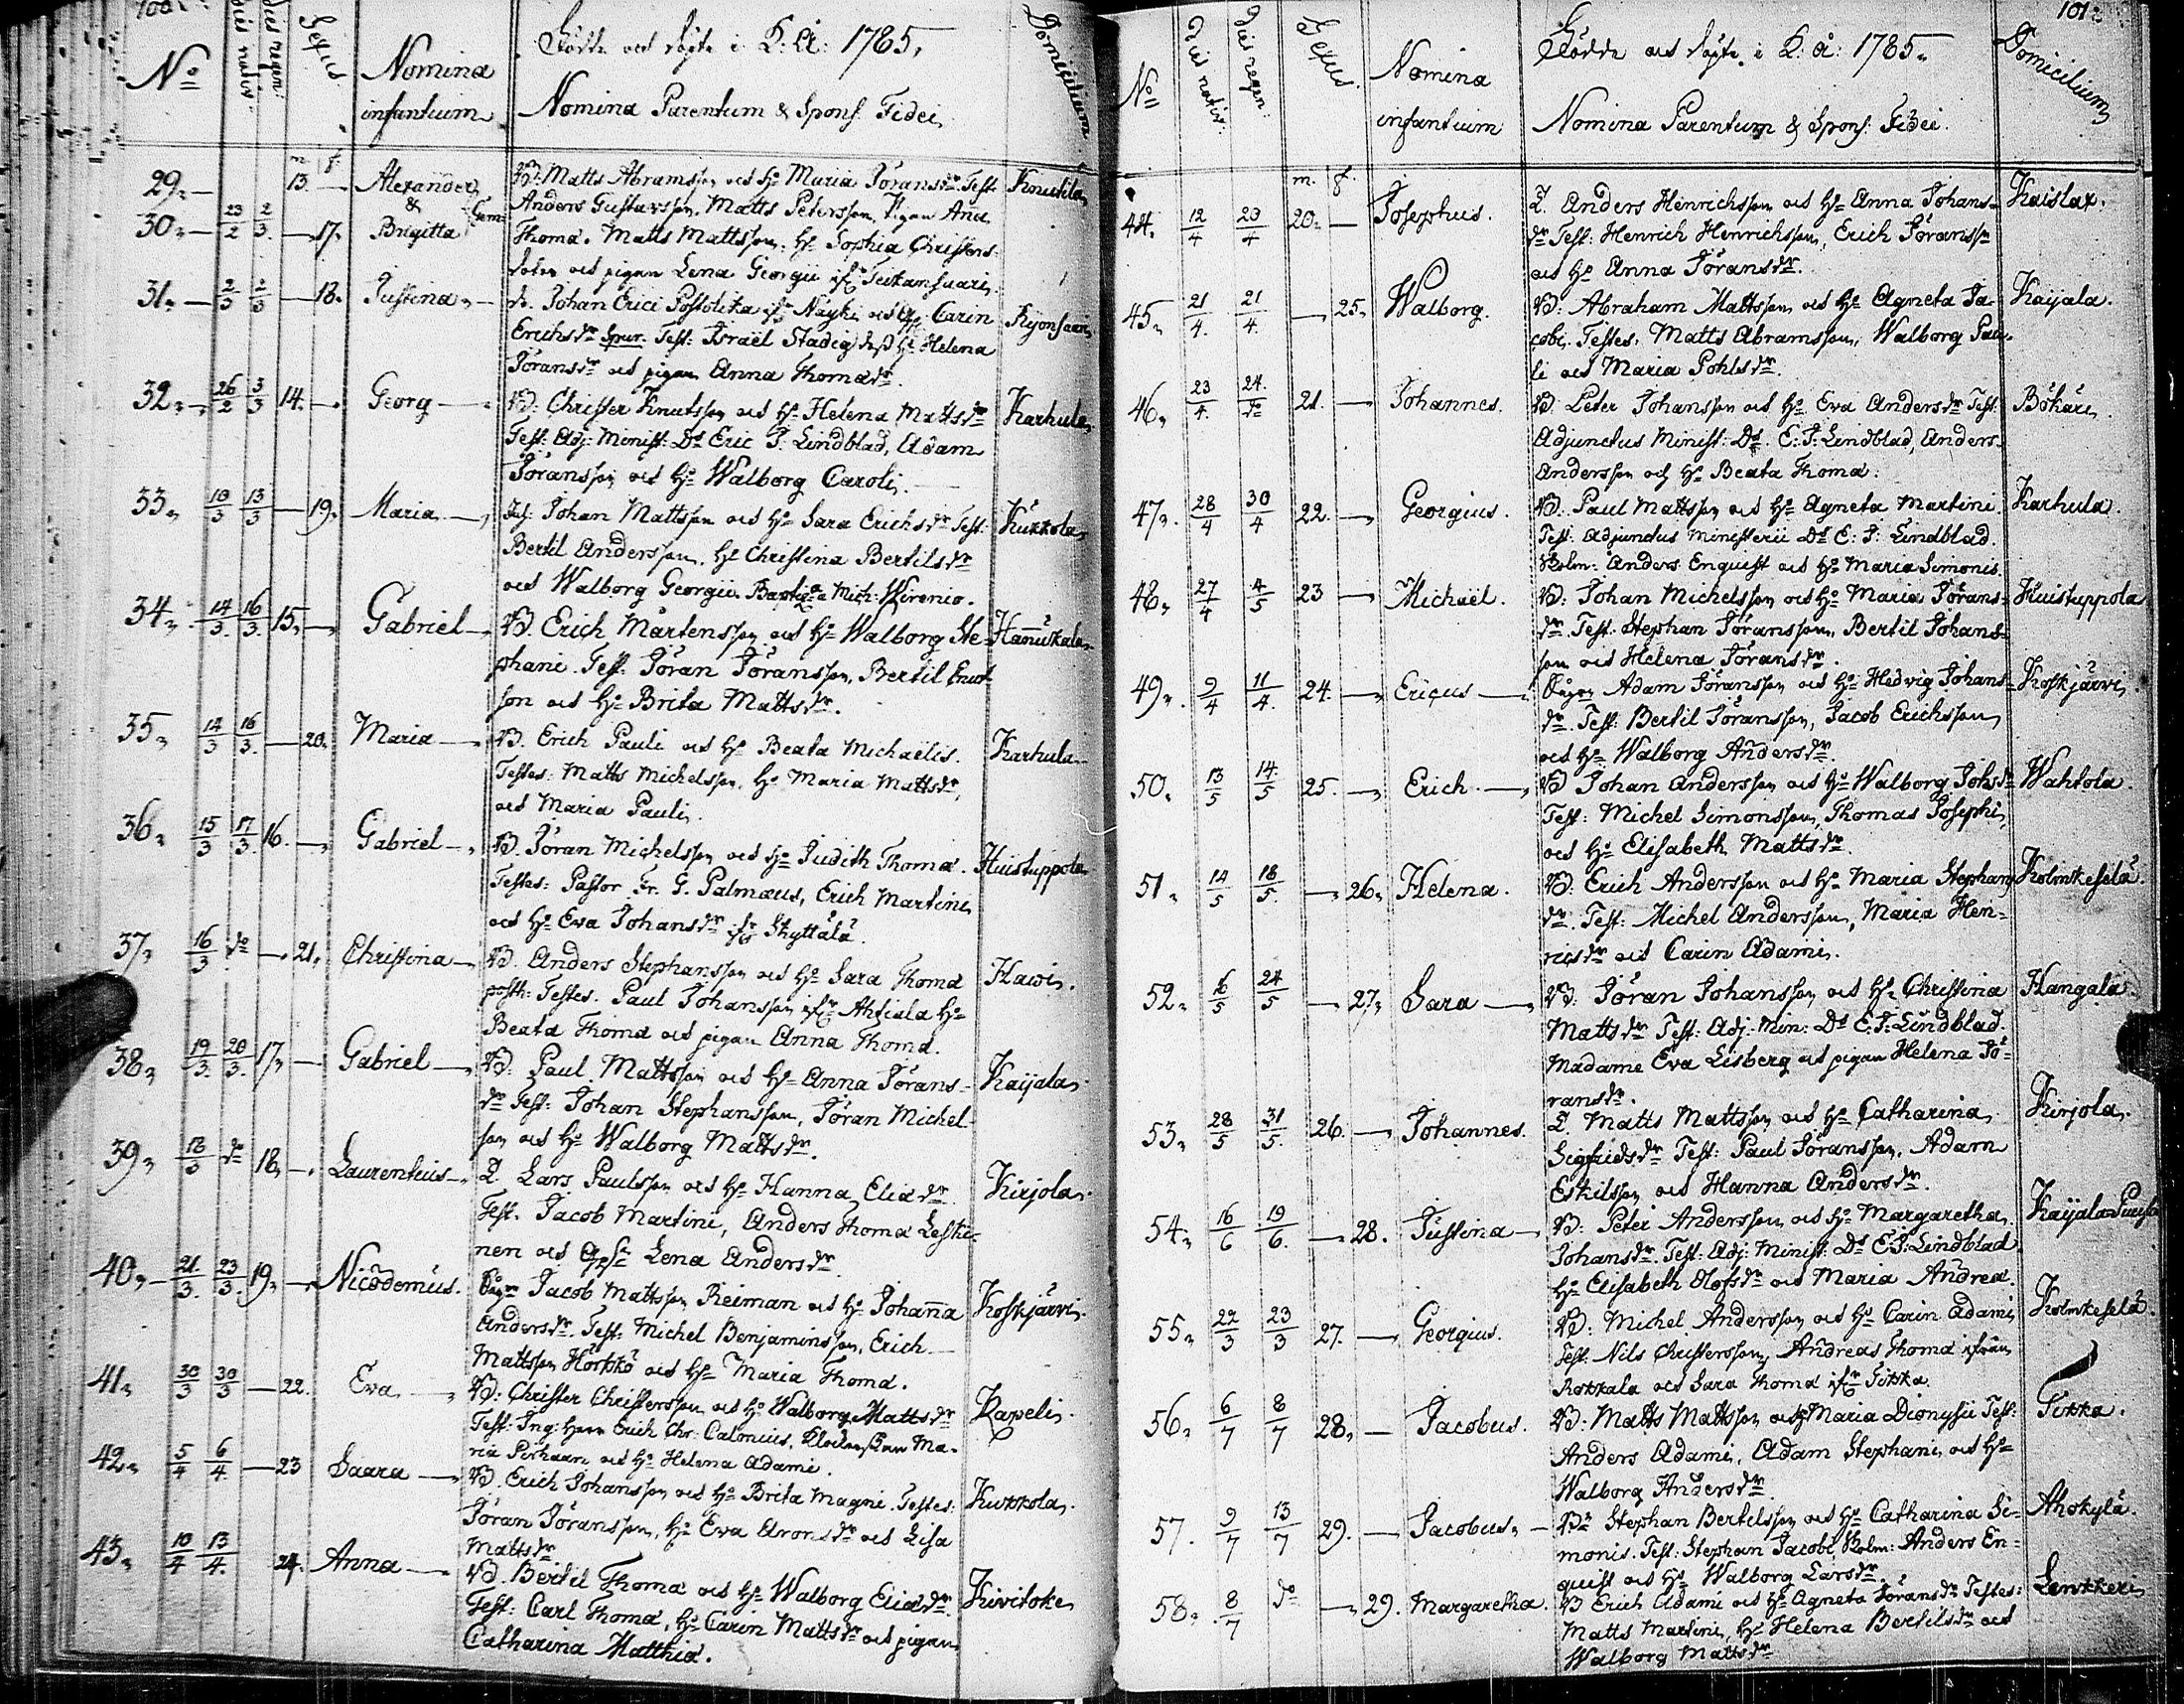 100.
Nº
dies nativ:
dies regen:
Sexus
Nomina
infantium
Födde och döpte i K: Å: 1785.
Nomina Parentum & Spons. Fidei
Domicilium
m. f.
29. 13. Alexander B. Matts Abramsson och H. Maria Jöransdr Test. Knutila
& Gem: Anders Gustavsson, Matts Petersson, Pigan Ana
30. 23/2 2/3 17. Brigitta Thomæ. Matts Mattsson. H. Sophia Christers-
dotter och pigan Lena Georgii ifr
31. 2/3 2/3 18. Justina dr. Johan Erici ifr Näyki och Carin Kÿönsaari
Erichsdr Spur. Test: Israël Stadig dess H. Helena
Jöransdr och pigan Anna Thomædr.
32. 26/2 3/3 14. Georg B. Christer Knutsson och H. Helena Mattsdr Karhula
Test: Adj: Minist: Ds Eric J. Lindblad, Adam
Jöransson och H. Walborg Caroli.
33. 10/3 13/3 19. Maria Johan Mattsson och H. Sara Erichsdr Test: Kukkola
Bertil Andersson, H. Christina Bertilsdr
och Walborg Georgii. Mich: Wirenio.
34. 14/3 16/3 15. Gabriel B. Erich Mårtensson och H. Walborg Ste- Hanukala
phani. Test: Jöran Jöransson, Bertil Knut-
son och H. Brita Mattsdr.
35. 14/3 16/3 20. Maria B. Erich Pauli och H. Beata Michaëlis. Karhula
Testes: Matts Michelsson, H. Maria Mattsdr,
och Maria Pauli.
36. 15/3 17/3 16. Gabriel B. Jöran Michelsson och H. Judith Thomæ. Huistuppola
Testes: Pastor Fr. G. Palmæus, Erich Martini
och H. Eva Johansdr ifr Skyttälä.
37. 16/3 do 21. Christina B. Anders Stephansson och H. Sara Thomæ Hawi.
posth: Testes. Paul Johansson ifr Ahtiala H.
Beata Thomæ och pigan Anna Thomæ.
38. 19/3 20/3 17. Gabriel B: Paul Mattsson och H. Anna Jörans- Kaijala
dr Test: Johan Stephansson, Jöran Michel-
son och H. Walborg Mattsdr.
39. 18/3 do 18. Laurentius T. Lars Paulsson och H. Hanna Eliædr. Kirjola
Test. Jacob Martini, Anders Thomæ Leski-
nen och Lena Andersdr.
40. 21/3 23/3 19. Nicodemus. Jacob Mattsson Reiman och H. Johanna Koskjärvi
Andersdr. Test: Michel Benjaminsson, Erich
Mattsson Hörkkö och H. Maria Thomæ.
41. 30/3 30/3 22. Eva B: Christer Christersson och H. Walborg Mattsdr Kapeli
Test: Ing: Herr Erich Chr: Calonius, Ma-
ria och H. Helena Adami.
42. 5/4 6/4 23 Saara B. Erich Johansson och H. Brita Magni. Testes: Kukkola
Jöran Jöransson, H. Eva Aronsdr och Lisa
Mattsdr
43. 10/4 13/4 24. Anna B. Bertil Thomæ och H. Walborg Eliædr. Kivitoke
Test: Carl Thomæ, H. Carin Mattsdr och pigan
Catharina Matthiæ.
101.
Nº
dies nativ:
dies regen:
Sexus.
Nomina
infantium
Födde och döpte i K. å: 1785.
Nomina Parentum & Spons: Fidei.
Domicilium
m. f.
44. 12/4 23/4 20. Josephus. T. Anders Henrichsson och H. Anna Johans- Kaislax.
dr Test: Henrich Henrichsson, Erich Jöransson
och H. Anna Jöransdr.
45. 21/4. 21/4. 25. Walborg. B: Abraham Mattsson och H. Agneta Ja- Kaijala.
cobi. Testes. Matts Abramsson, Walborg Pau-
li och Maria Pohlsdr.
46. 23/4. 24/do 21. Johannes. B. Peter Johansson och H. Eva Andersdr Test: Bökars
Adjunctus Minist: Ds. E: J: Lindblad, Anders
Andersson och H. Beata Thomæ.
47. 28/4 30/4 22. Georgius. B: Paul Mattsson och H. Agneta Martini. Karhula.
Test: Adjunctus Ministerii Ds E: J: Lindblad.
Anders Enquist och H. Maria Simonis.
48. 27/4 4/5 23 Michaël. B: Johan Michelsson och H. Maria Jörans- Huistuppola
dr Test. Stephan Jöransson, Bertil Johans-
son och Helena Jöransdr.
49. 9/4 11/4. 24. Ericus Adam Jöransson och H. Hedvig Johans- Koskjärvi
dr. Test: Bertil Jöransson, Jacob Erichsson
och H. Walborg Andersdr.
50. 13/5 14/5 25. Erich B Johan Andersson och H. Walborg Johsdr Wahtola.
Test: Michel Simonsson, Thomas Josephi
och H. Elisabeth Mattsdr.
51. 14/5 18/5. 26. Helena. B: Erich Andersson och H. Maria Stephans Kolmikeselä.
dr. Test: Michel Andersson, Maria Hen-
ricsdr och Carin Adami.
52. 16/5 24/5 27. Sara B: Jöran Johansson och H. Christina Hangala.
Mattsdr Test: Adj: Min: Ds E: J: Lindblad.
Madame Eva Lisberg och pigan Helena Jö-
ransdr.
53. 28/5 31/5. 26. Johannes. T. Matts Mattsson och H. Catharina Kirjola.
Sigfridsdr Test: Paul Jöransson, Adam
Eskilsson och Hanna Andersdr.
54. 16/6 19/6. 28. Justina B: Peter Andersson och H. Margaretha Kaijala
Johansdr. Test: Adj: Minist: Ds E: J: Lindblad
H. Elisabeth Olofsdr och Maria Andreæ.
55. 22/3 23/3 27. Georgius. B: Michel Andersson och H. Carin Adami Kolmikeselä.
Test: Nils Christersson, Andreas Thomæ ifrån
Rokkala och Sara Thomæ ifr Tikka.
56. 6/7 8/7 28. Jacobus. B: Matts Mattsson och H. Maria Dionysii Test: Tikka.
Anders Adami, Adam Stephani och H.
Walborg Andersdr.
57. 9/7 13/7 29. Jacobus. B: Stephan Bertilsson och H. Catharina Si- Ahokylä.
monis. Test: Stephan Jacobi, Anders En-
quist och H. Walborg Larsdr.
58. 8/7 do 29. Margaretha. B Erich Adami och H. Agneta Jöransdr Testes: Lenkkeri
Matts Martini, H. Helena Bertilsdr och
Walborg Mattsdr